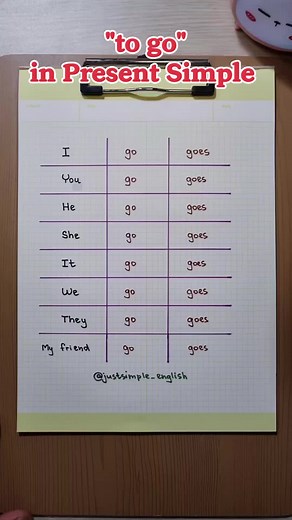 "to go"
in Present Simple
I go goes
You go goes
He go goes
She go goes
It go goes
We go goes
They go goes
My friend go goes
@justsimple_english